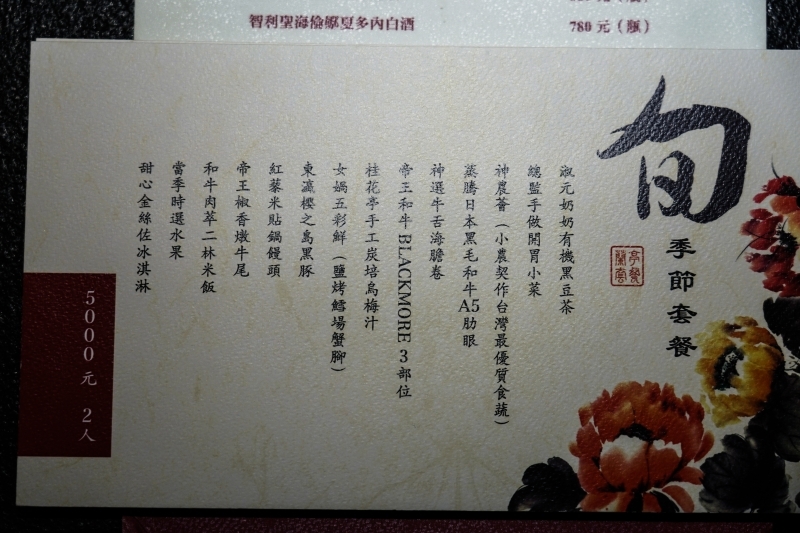 780元（瓶）
旬
季節套餐
淑元奶奶有機黑豆茶
總監手做開胃小菜
神農薈（小農契作台灣最優質食蔬）
蒸騰日本黑毛和牛A5肋眼
神選牛舌海膽卷
帝王和牛BLACKMORE 3部位
桂花亭手工炭培烏梅汁
女媧五彩鮮（鹽烤鱈場蟹腳）
東瀛櫻之島黑豚
紅藜米貼鍋饅頭
帝王椒香燉牛尾
和牛肉萃二林米飯
當季時選水果
甜心金絲佐冰淇淋
5000元 2人